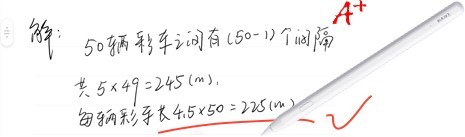 解：
A+
50辆彩车之间有(50-1)个间隔
共5×49=245(m).
每辆彩车长4.5×50=225(m)